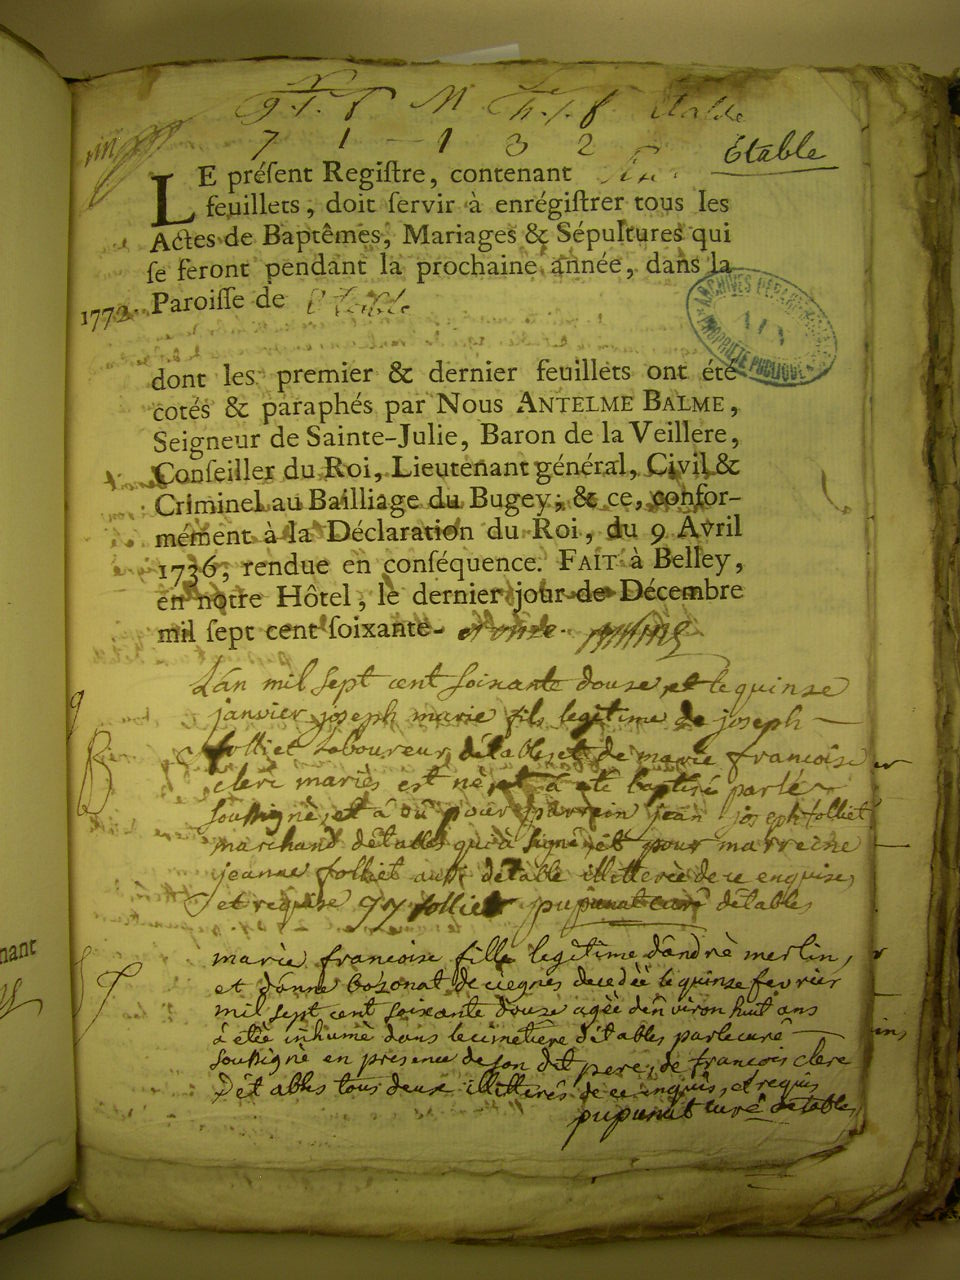 Étable
LE préſent Regiſtre, contenant
feuillets, doit ſervir à enrégiſtrer tous les
Actes de Baptêmes, Mariages & Sépultures qui
ſe feront pendant la prochaine année, dans la
1772. Paroiſſe de Etable
ARCHIVES PROPRIÉTÉ PUBLIQUE
dont les premier & dernier feuillets ont été
cotés & paraphés par Nous ANTELME BALME,
Seigneur de Sainte-Julie, Baron de la Veillere,
Conſeiller du Roi, Lieutenant général, Civil &
Criminel au Bailliage du Bugey; & ce, confor-
mément à la Déclaration du Roi, du 9 Avril
1736, rendue en conſéquence. FAIT à Belley,
en notre Hôtel, le dernier jour de Décembre
mil ſept cent ſoixante- et onze.
L'an mil sept cent soixante douse et le quinse
janvier joseph marie fils legitime de joseph
folliet laboureur d'etables et de marie francoise
clerc mariès est nè et à été baptisé par le
soussignè, et à eû pour parrein jean joseph folliet
marchand détables qui à signé et pour marreine
jeanne folliet aussi détable illitterèe de ce enquise,
et requise J J folliet pupunat curé détables
marie francoise fille legitime d'andrè merlin,
et d'anne bozonat de ciegnes decedèe le quinse fevrier
mil sept cent soixante douse agèe d'environ huit ans
à étèe inhumè dans le cimetiere d'étables par le curé
soussignè en presence de son dit pere, de francois clerc
d'étables tous deux illitterès de ce enquis, et requis
pupunat curé détables
nant